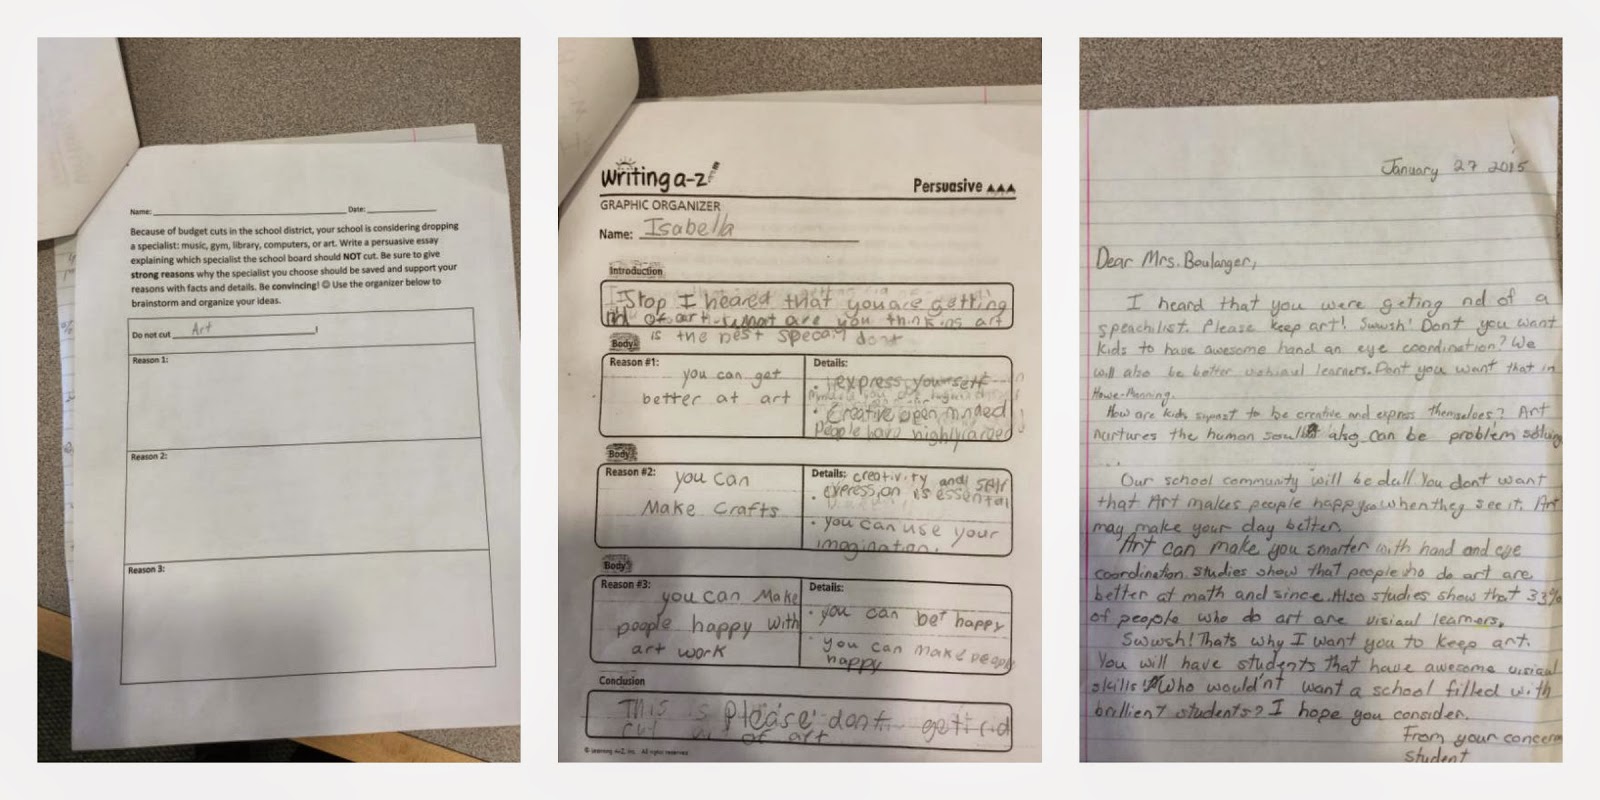 Name: Date:
Because of budget cuts in the school district, your school is considering dropping
a specialist: music, gym, library, computers, or art. Write a persuasive essay
explaining which specialist the school board should NOT cut. Be sure to give
strong reasons why the specialist you choose should be saved and support your
reasons with facts and details. Be convincing! ☺ Use the organizer below to
brainstorm and organize your ideas.
Do not cut Art !
Reason 1:
Reason 2:
Reason 3:
Writing a-z
Persuasive
GRAPHIC ORGANIZER
Name: Isabella
Introduction
Stop I heared that you are getting
rid of art. what are you thinking art
is the best dont
Body
Reason #1:
you can get
better at art
Details:
• express yourself
• Creative open minded
people have highly
Body
Reason #2:
you can
Make Crafts
Details: creativity and self
expression is essental
• you can use your
imogination.
Body
Reason #3:
you can Make
people happy with
art work
Details:
• you can be happy
• you can make people
happy
Conclusion
This is Please dont get rid
of art
© Learning A-Z, Inc. All rights reserved.
January 27 2015
Dear Mrs. Boulanger,
I heard that you were geting rid of a
speachilist. Please keep art! Swwsh! Dont you want
kids to have awesome hand an eye coordination? We
will also be better learners. Dont you want that in
Howe-Manning.
How are kids to be creative and express themselves? Art
nurtures the human soul also can be problem solving
....
Our school community will be dull You dont want
that Art makes people happy when they see it. Art
may make your day better.
Art can make you smarter with hand and eye
coordination. Studies show that people who do art are
better at math and since. Also studies show that 33%
of people who do art are visiaul learners.
Swwsh! Thats why I want you to keep art.
You will have students that have awesome visiaul
skills! Who wouldn't want a school filled with
brillient students? I hope you consider.
From your
student